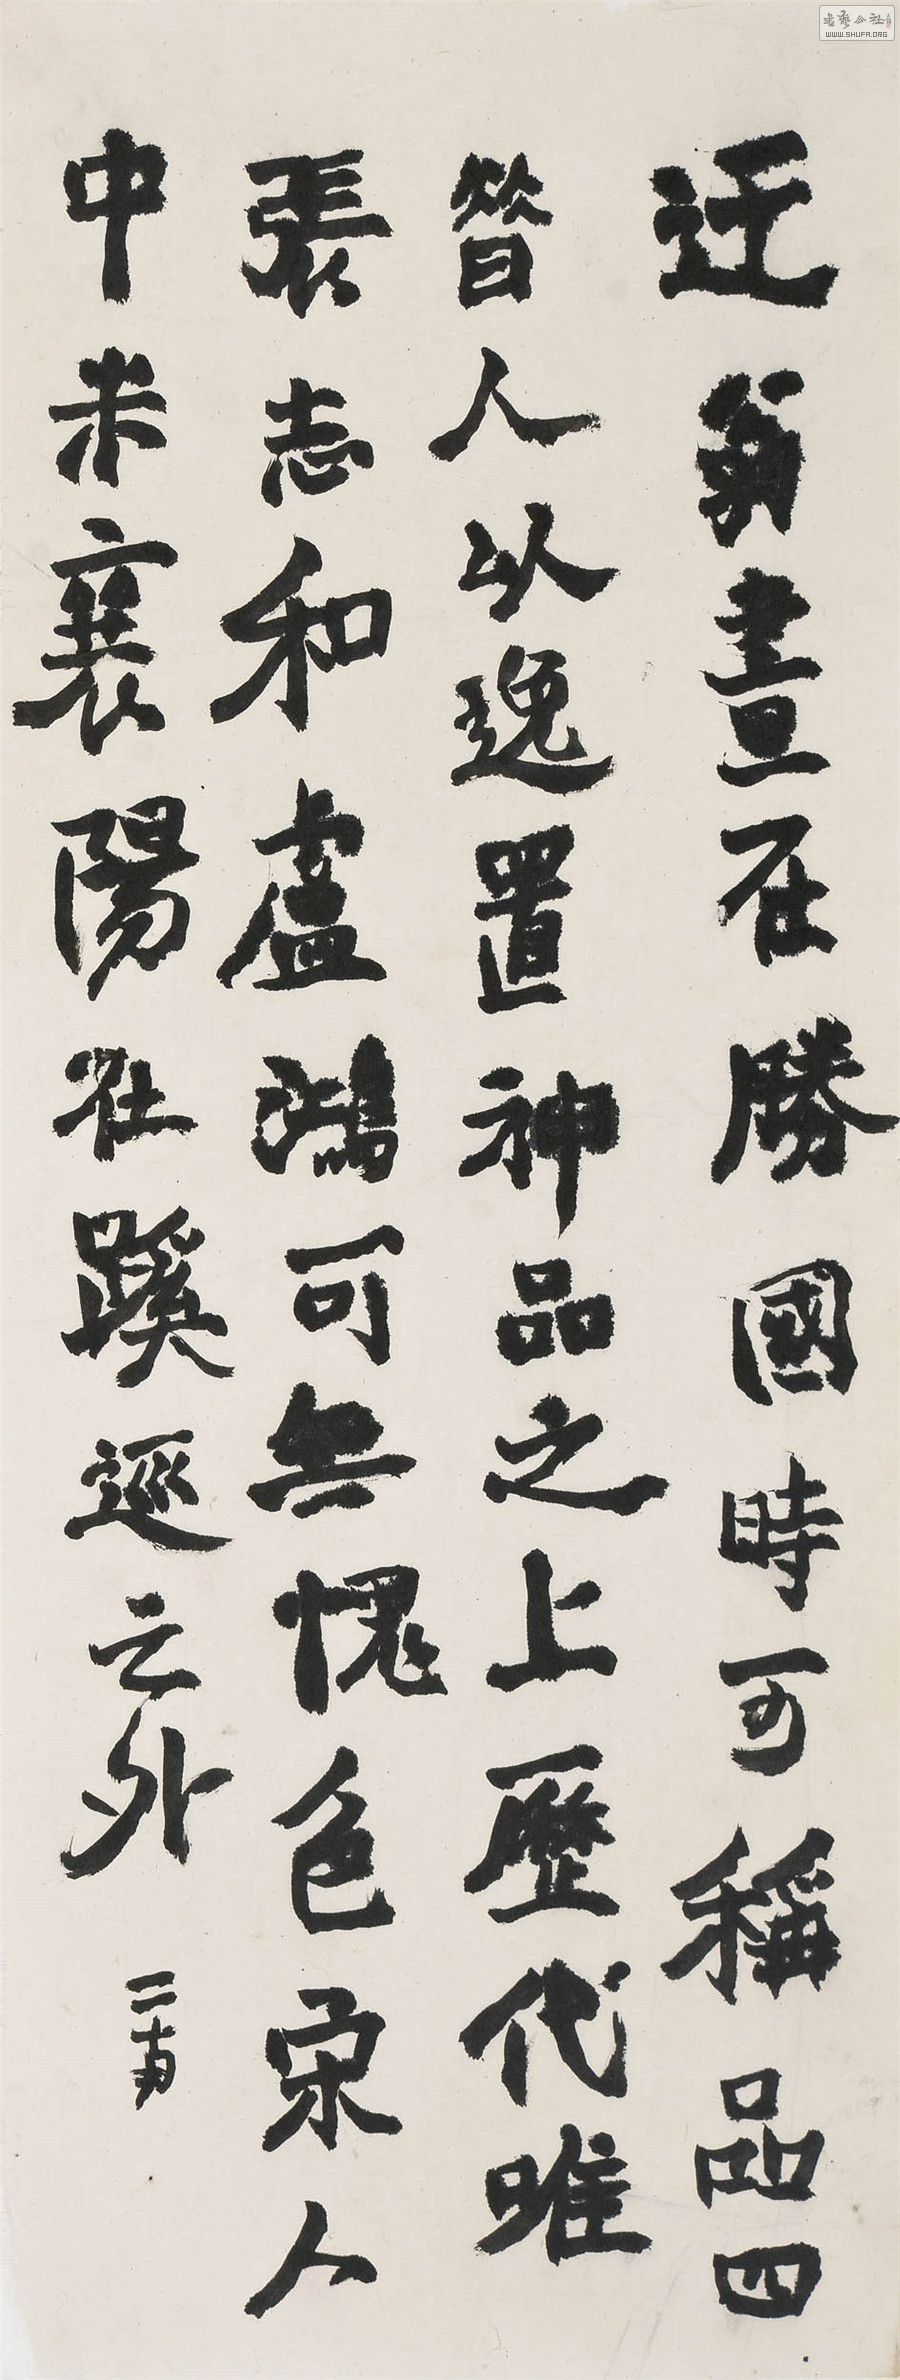 迂翁畫在勝國時可稱品四
昔人以逸置神品之上歷代唯
張志和盧鴻可無愧色宋人
中米襄陽在蹊逕之外
書藝公社
WWW.SHUFA.ORG